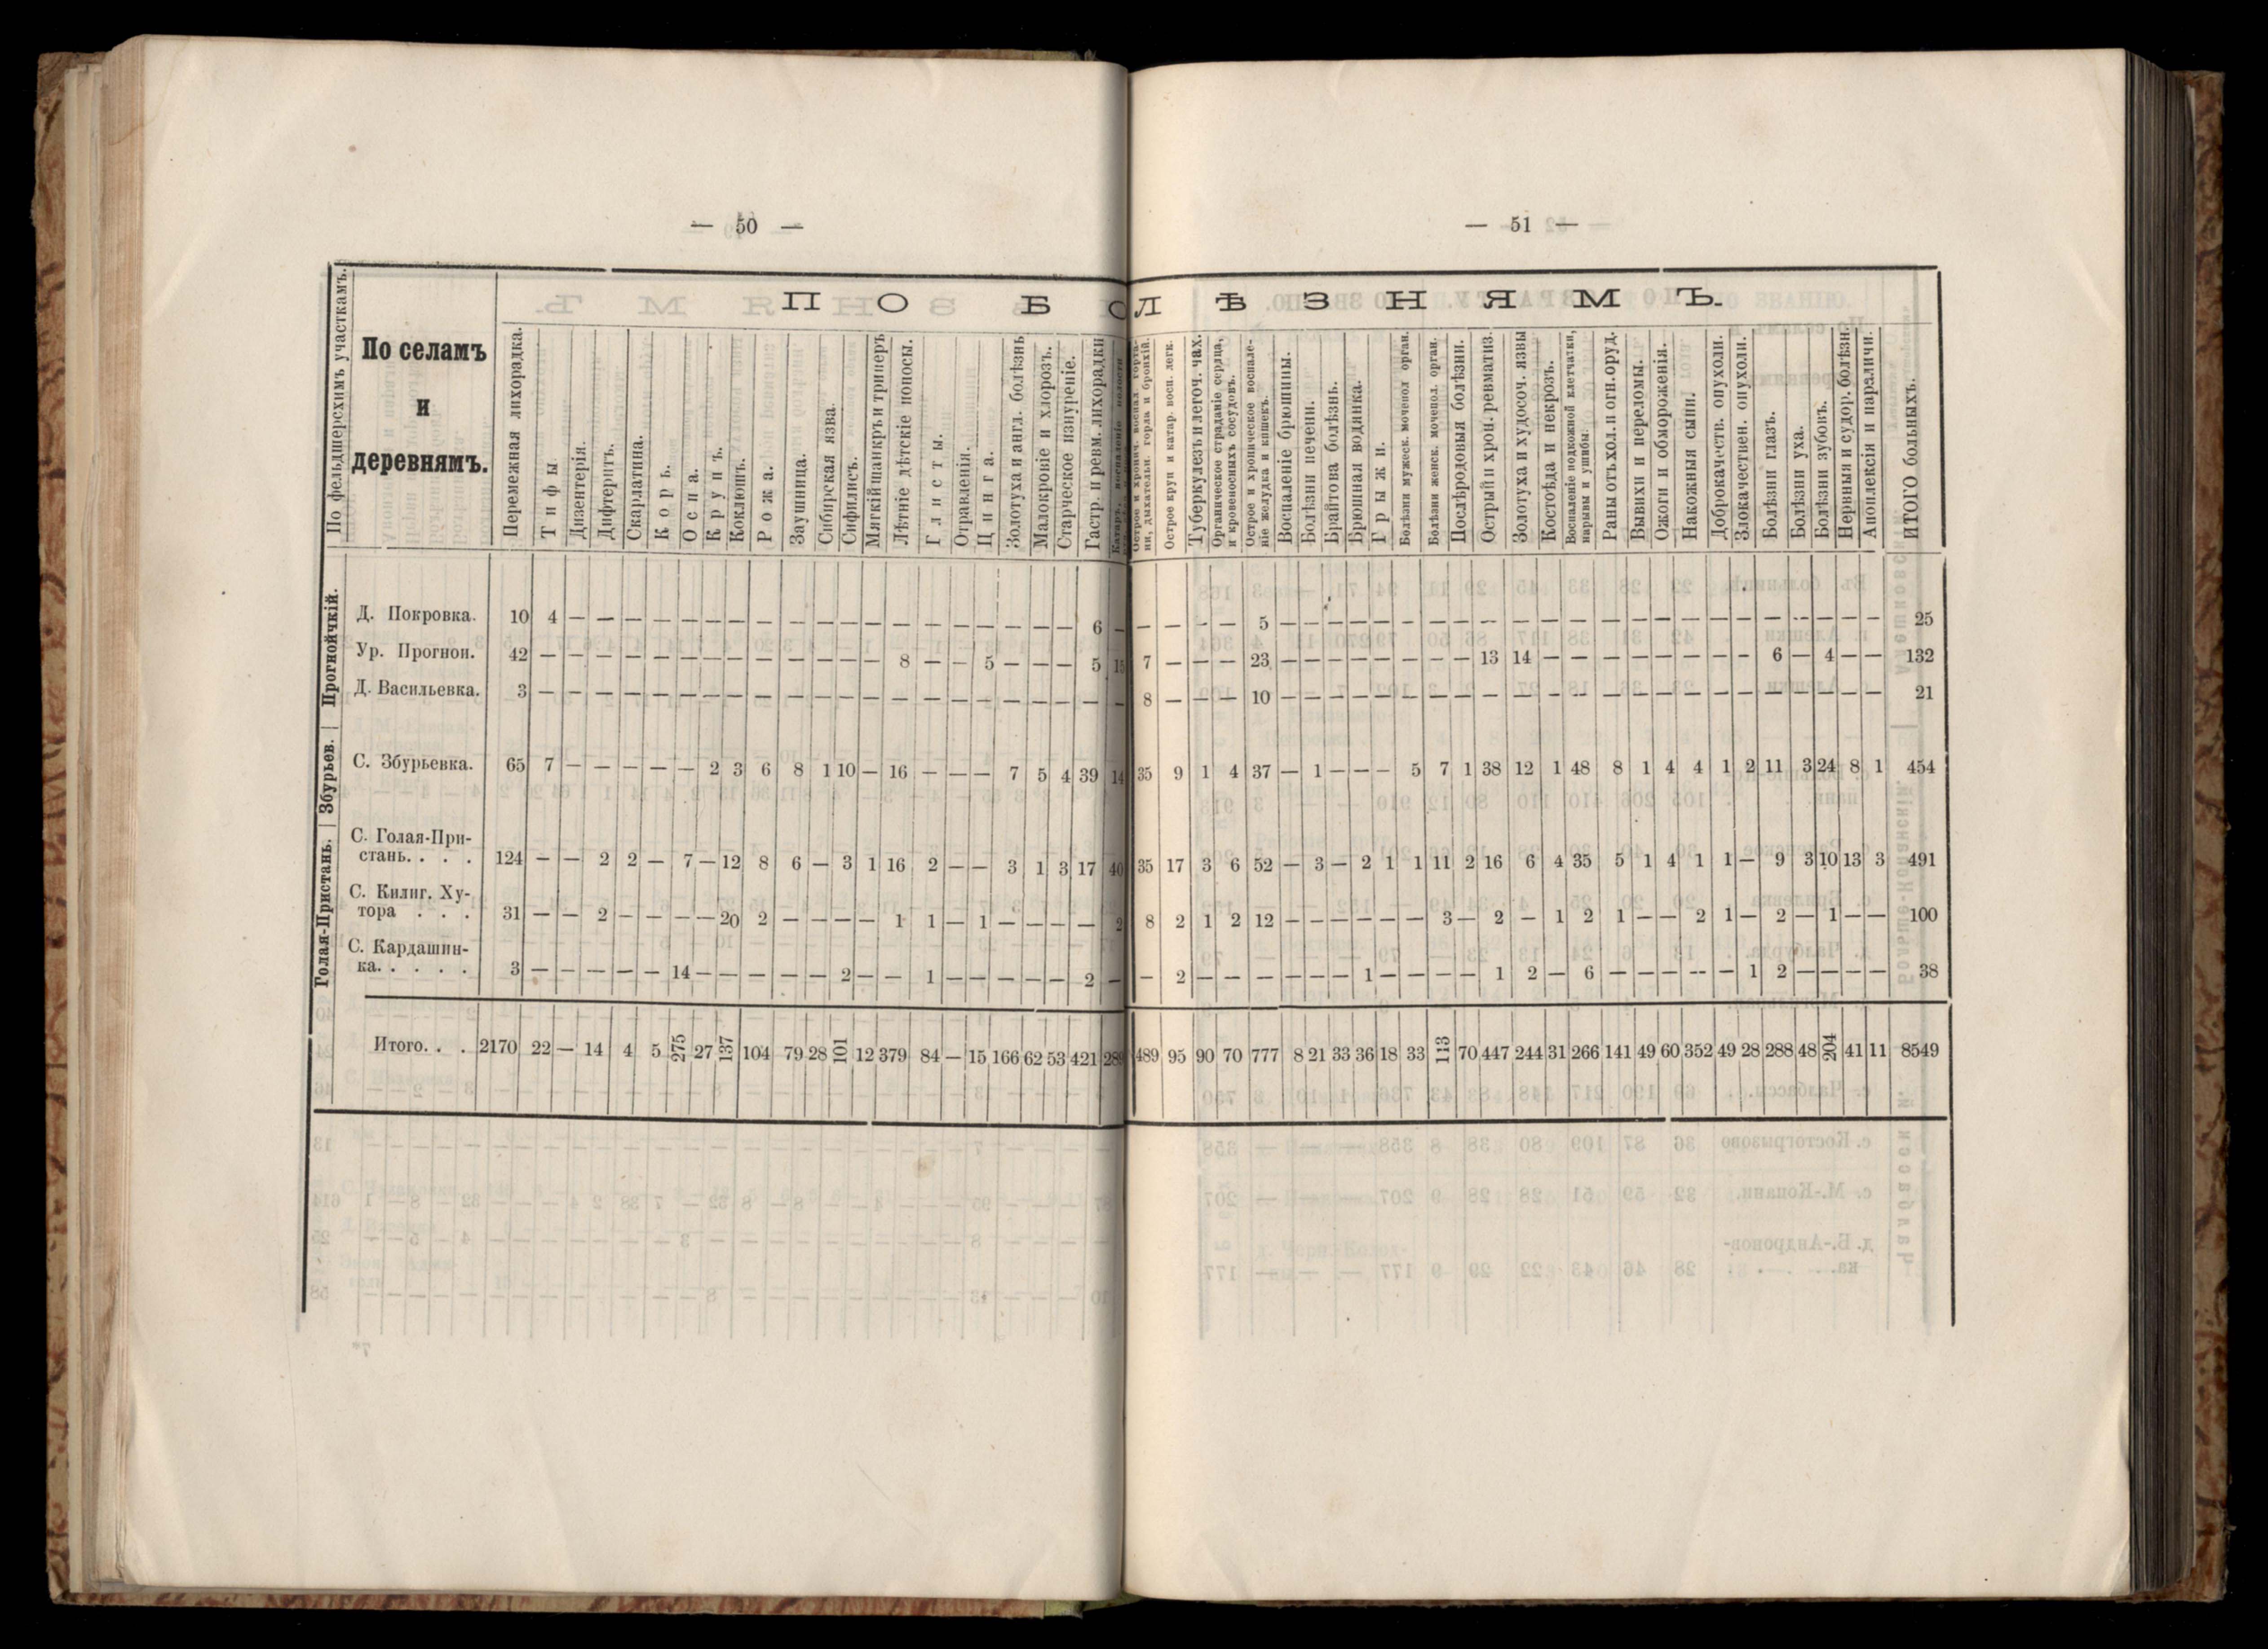 — 50 —
— 51 —
ПО БОЛѢЗНЯМЪ.
По фельдшерсхимъ участкамъ.
По селамъ
и
деревнямъ.
Перемежная лихорадка.
Тифы
Дизентерія.
Дифтеритъ.
Скарлатина.
Корь.
Оспа.
Крупъ.
Коклюшъ.
Рожа.
Заушница.
Сибирская язва.
Сифилисъ.
Мягкій шанкръ и триперъ
Лѣтніе дѣтскіе поносы.
Глисты.
Отравленія.
Цинга.
Золотуха и англ. болѣзнь
Малокровіе и хлорозъ.
Старческое изнуреніе.
Гастр. и ревм. лихорадки
Острое и хронич. воспал. горта-
ни, дыхательн. горла и бронхій.
Острое круп и катар. восп. легк.
Туберкулезъ и легоч. чах.
Органическое страданіе сердца,
и кровеносныхъ сосудовъ.
Острое и хроническое воспале-
ніе желудка и кишекъ.
Воспаленіе брюшины.
Болѣзни печени.
Брайтова болѣзнь.
Брюшная водянка.
Грыжи.
Болѣзни мужеск. мочепол орган.
Болѣзни женск. мочепол. орган.
Послѣродовыя болѣзни.
Острый и хрон. ревматиз.
Золотуха и худосоч. язвы
Костоѣда и некрозъ.
Воспаленіе подкожной клетчатки,
нарывы и ушибы.
Раны отъ хол. и огн. оруд.
Вывихи и переломы.
Ожоги и обмороженія.
Накожныя сыпи.
Доброкачеств. опухоли.
Злокачествен. опухоли.
Болѣзни глазъ.
Болѣзни уха.
Болѣзни зубовъ.
Нервныя и судор. болѣзн.
Апоплексія и параличи.
ИТОГО больныхъ.
Прогнойчкій.
Д. Покровка. 10 4 — — — — — — — — — — — — — — — — — — — 6 — — — — — 5 — — — — — — — — — — — — — — — — — — — — — — — 25
Ур. Прогнои. 42 — — — — — — — — — — — — — 8 — — 5 — — — 5 15 7 — — — 23 — — — — — — — — 13 14 — — — — — — — — 6 — 4 — — 132
Д. Васильевка. 3 — — — — — — — — — — — — — — — — — — — — — — 8 — — — 10 — — — — — — — — — — — — — — — — — — — — — — — 21
Збурьев.
С. Збурьевка. 65 7 — — — — — 2 3 6 8 1 10 — 16 — — — 7 5 4 39 14 35 9 1 4 37 — 1 — — — 5 7 1 38 12 1 48 8 1 4 4 1 2 11 3 24 8 1 454
Голая-Пристань.
С. Голая-При-
стань. . . . 124 — — 2 2 — 7 — 12 8 6 — 3 1 16 2 — — 3 1 3 17 40 35 17 3 6 52 — 3 — 2 1 1 11 2 16 6 4 35 5 1 4 1 1 — 9 3 10 13 3 491
С. Килиг. Ху-
тора . . . 31 — — 2 — — — — 20 2 — — — — 1 1 — 1 — — — — 2 8 2 1 2 12 — — — — — — 3 — 2 — 1 2 1 — — 2 1 — 2 — 1 — — 100
С. Кардашин-
ка. . . . . 3 — — — — — 14 — — — — — 2 — — 1 — — — — — 2 — — 2 — — — — — — 1 — — — — 1 2 — 6 — — — — — 1 2 — — — — 38
Итого. . . 2170 22 — 14 4 5 275 27 137 104 79 28 101 12 379 84 — 15 166 62 53 421 289 489 95 90 70 777 8 21 33 36 18 33 113 70 447 244 31 266 141 49 60 352 49 28 288 48 204 41 11 8549